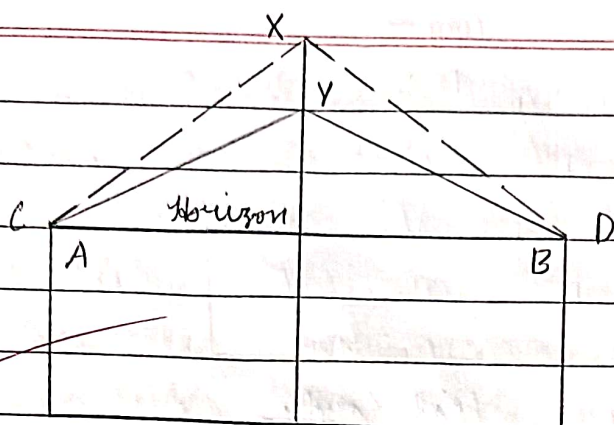 X
Y
Horizon
C
D
A
B